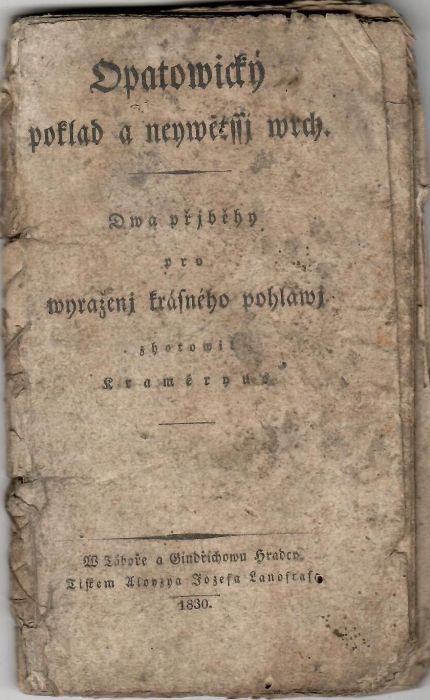 Opatowický
poklad a neywětssj wrch.
Dwa přjběhy
pro
wyraženj krásného pohlawj
zhotowil
Kraméryus
W Táboře a Gindřichowu Hradcy,
Tiskem Aloyzya Jozefa Landfrasa
1830.